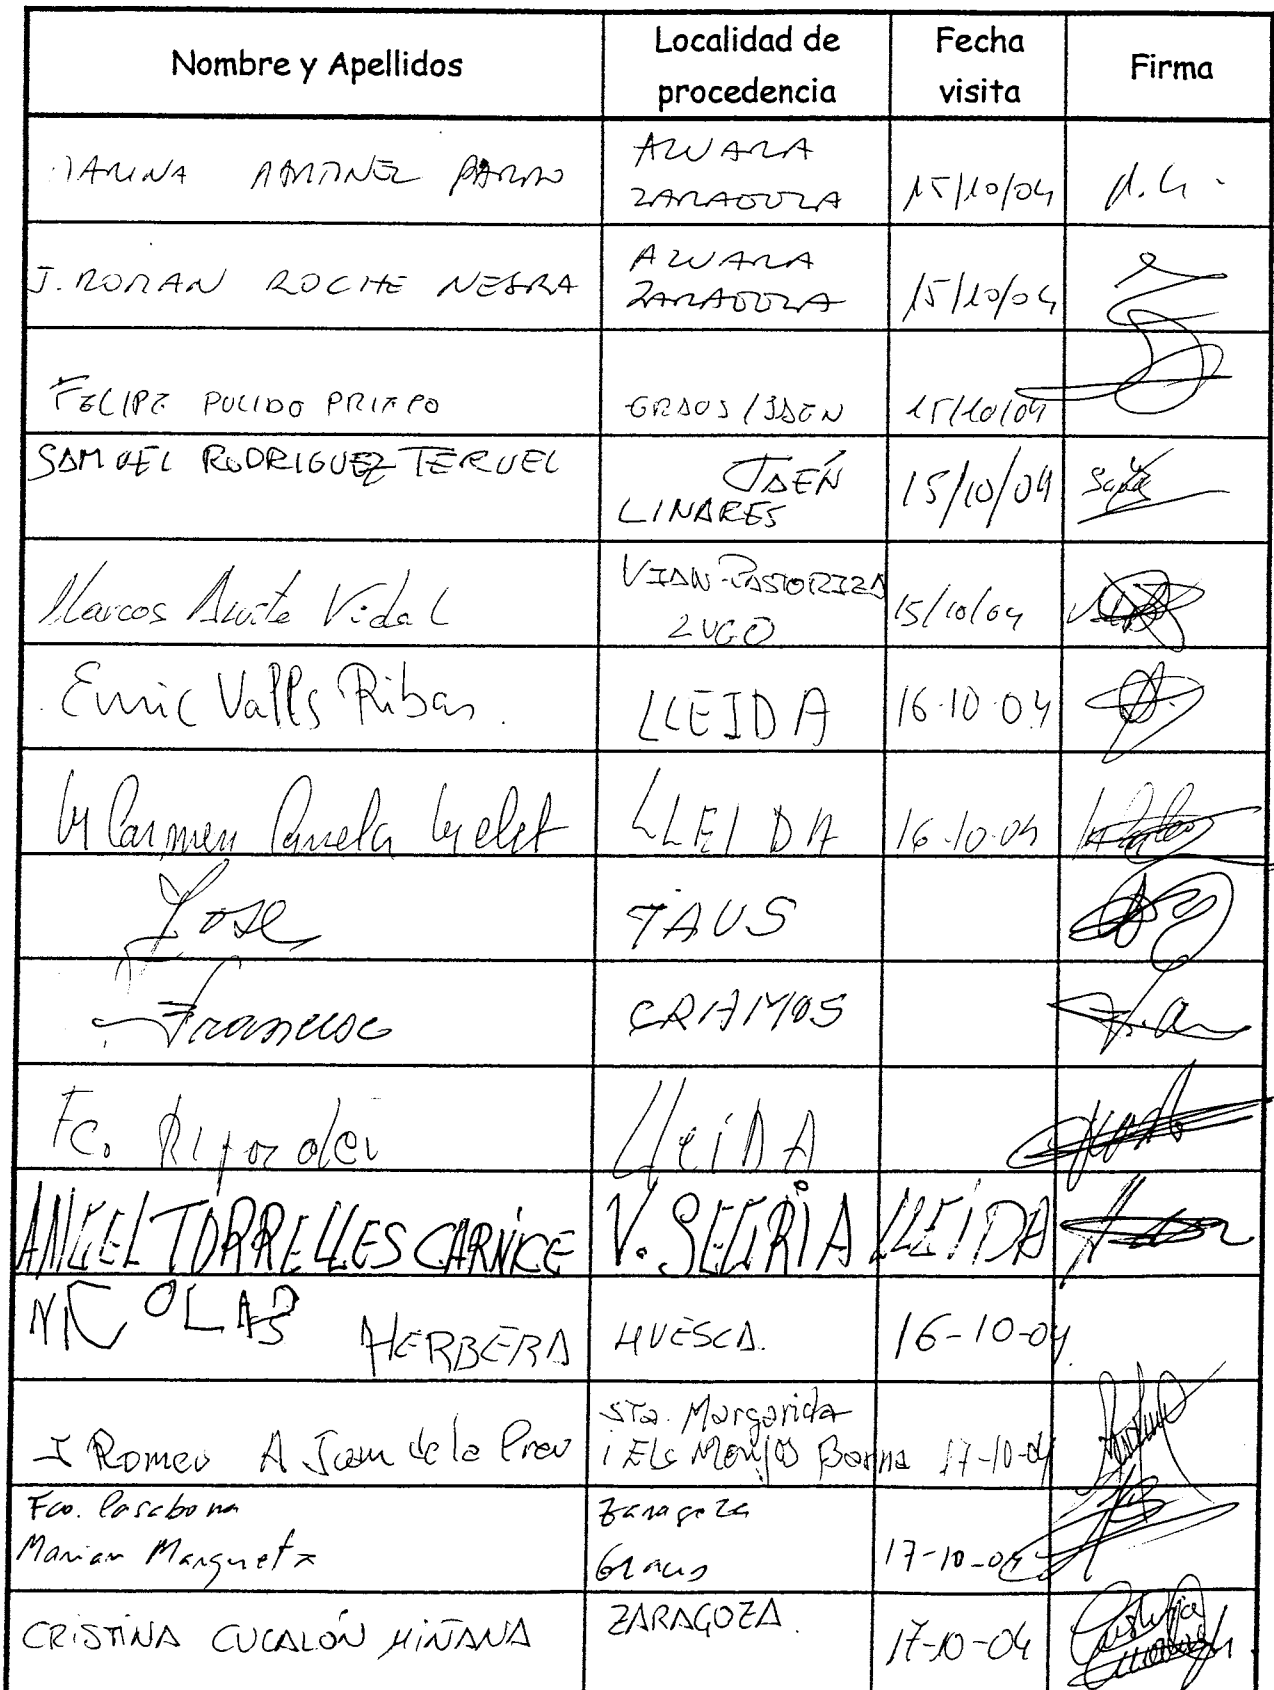 Nombre y Apellidos
Localidad de
procedencia
Fecha
visita
Firma
AZUARA
ZARAGOZA
15/10/04
J. ROMAN ROCHE NEGRA
AZUARA
ZARAGOZA
15/10/04
FELIPE PULIDO PRIEGO
GRAUS / JAEN
15/10/04
SAMUEL RODRIGUEZ TERUEL
JAÉN
LINARES
15/10/04
Marcos Vidal
VIAN-PASTORIZA
LUGO
15/10/04
Enric Valls Ribas.
LLEIDA
16-10-04
M Carmen
LLEIDA
16-10-04
Jose
TAUS
Francisco
Fc.
LLeiDA
ANGEL TORRELLES CARNICE
V. SEGRIÀ LLEIDA
NICOLAS HERBERA
HUESCA.
16-10-04
J Romeu A Juan de la Creu
Sta. Margarida
i ELS Monjos Barna
17-10-04
Fco. Casabona
Marian Margueta
Zaragoza
Graus
17-10-04
CRISTINA CUCALÓN MIÑANA
ZARAGOZA.
17-10-04